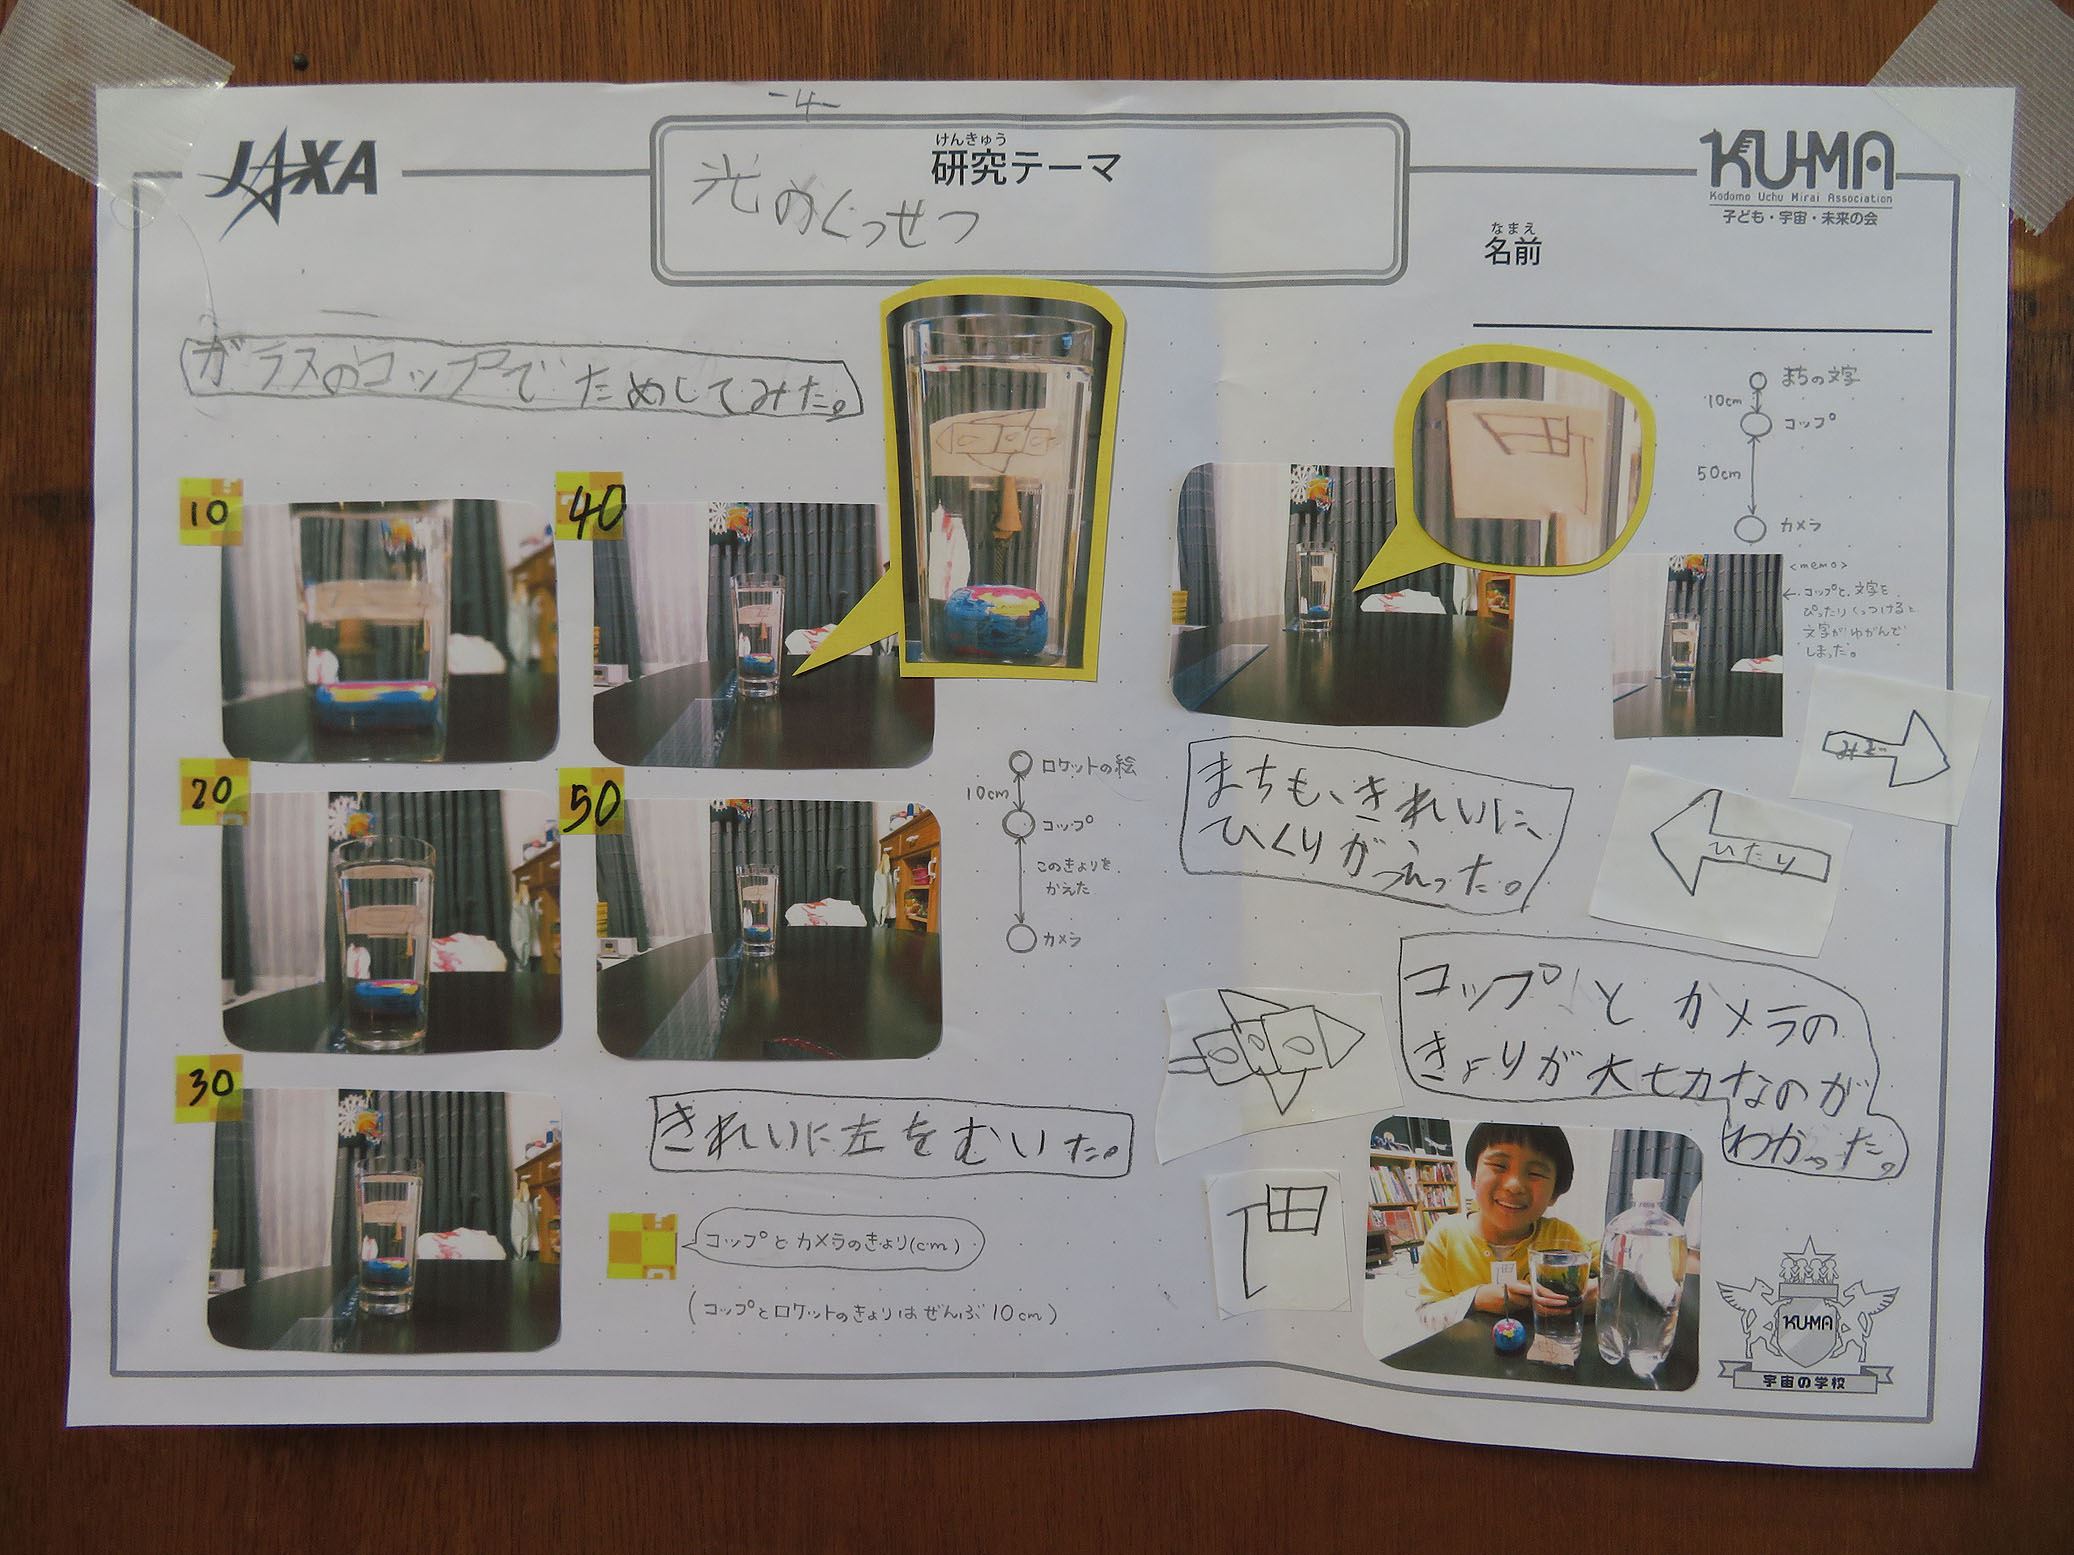 -4-
JAXA
けんきゅう
研究テーマ
光のくっせつ
KU-MA
Kodomo Uchu Mirai Association
子ども・宇宙・未来の会
なまえ
名前
ガラスのコップでためしてみた。
10
40
20
50
30
ロケットの絵
10cm
コップ
このきょりを
かえた
カメラ
きれいに左をむいた。
コップとカメラのきょり(cm)
(コップとロケットのきょりはぜんぶ10cm)
まちの文字
10cm
コップ
50cm
カメラ
<memo>
←コップと文字を
ぴったりくっつけると
文字がゆがんで
しまった。
まちも、きれいに、
ひくりがえった。
みぎ
ひだり
コップとカメラの
きょりが大切なのが
わかった。
町
KU-MA
宇宙の学校